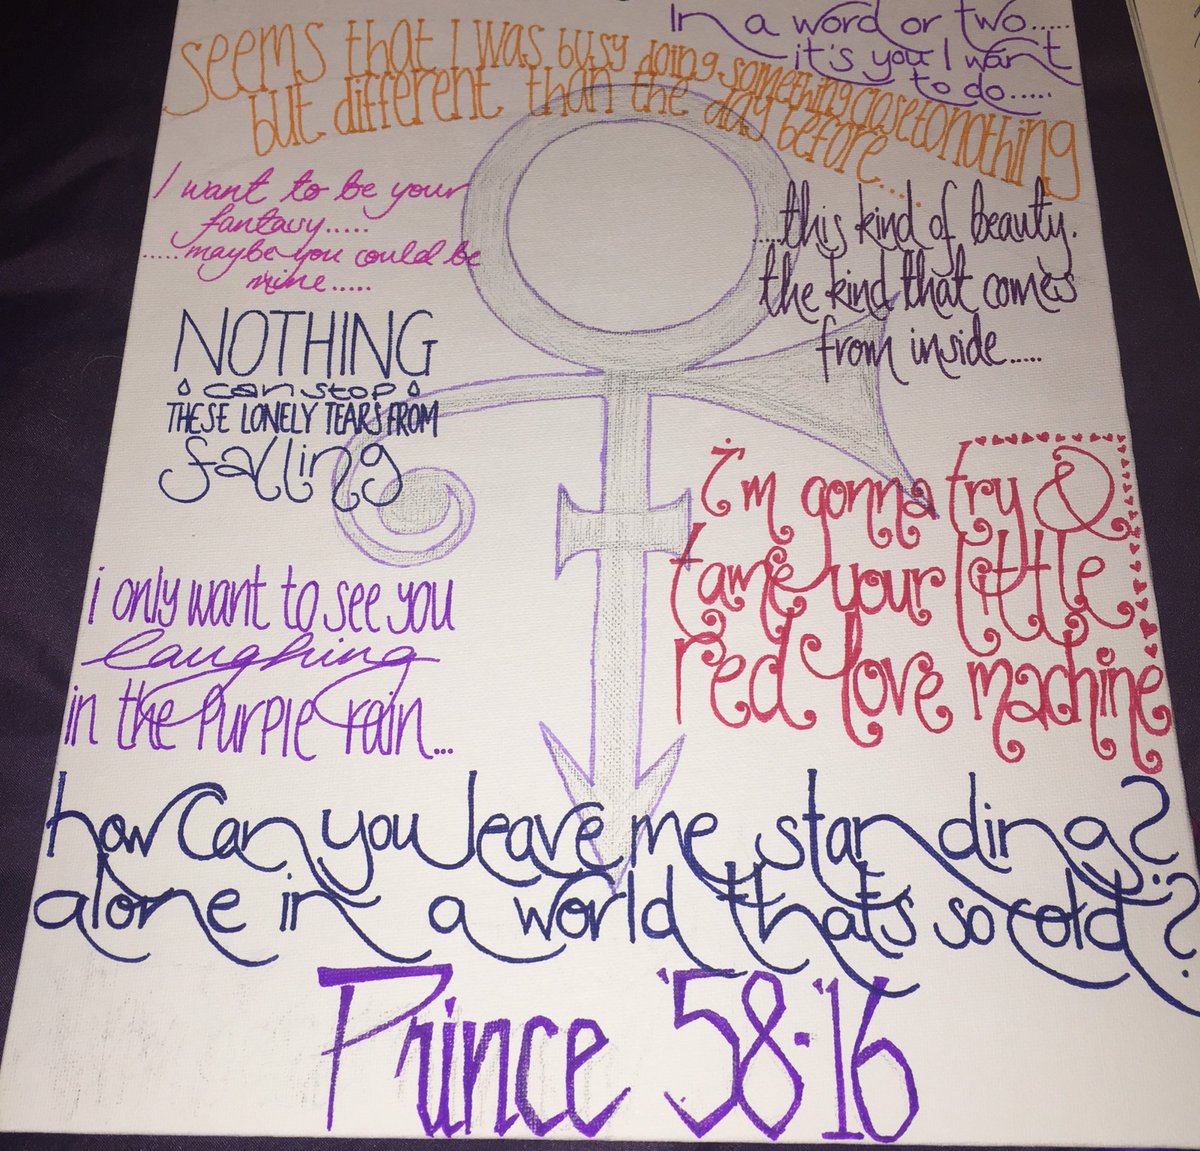 In a word or two.....
it's you I want
to do.....
Seems that I was busy doing something close to nothing
but different than the day before.....
I want to be your
fantasy.....
.....maybe you could be
mine.....
....this kind of beauty.
the kind that comes
from inside.....
NOTHING
can stop
THESE LONELY TEARS FROM
falling
i'm gonna try &
tame your little
red love machine
i only want to see you
laughing
in the purple rain...
how can you leave me standing?
alone in a world thats so cold?
Prince '58-'16